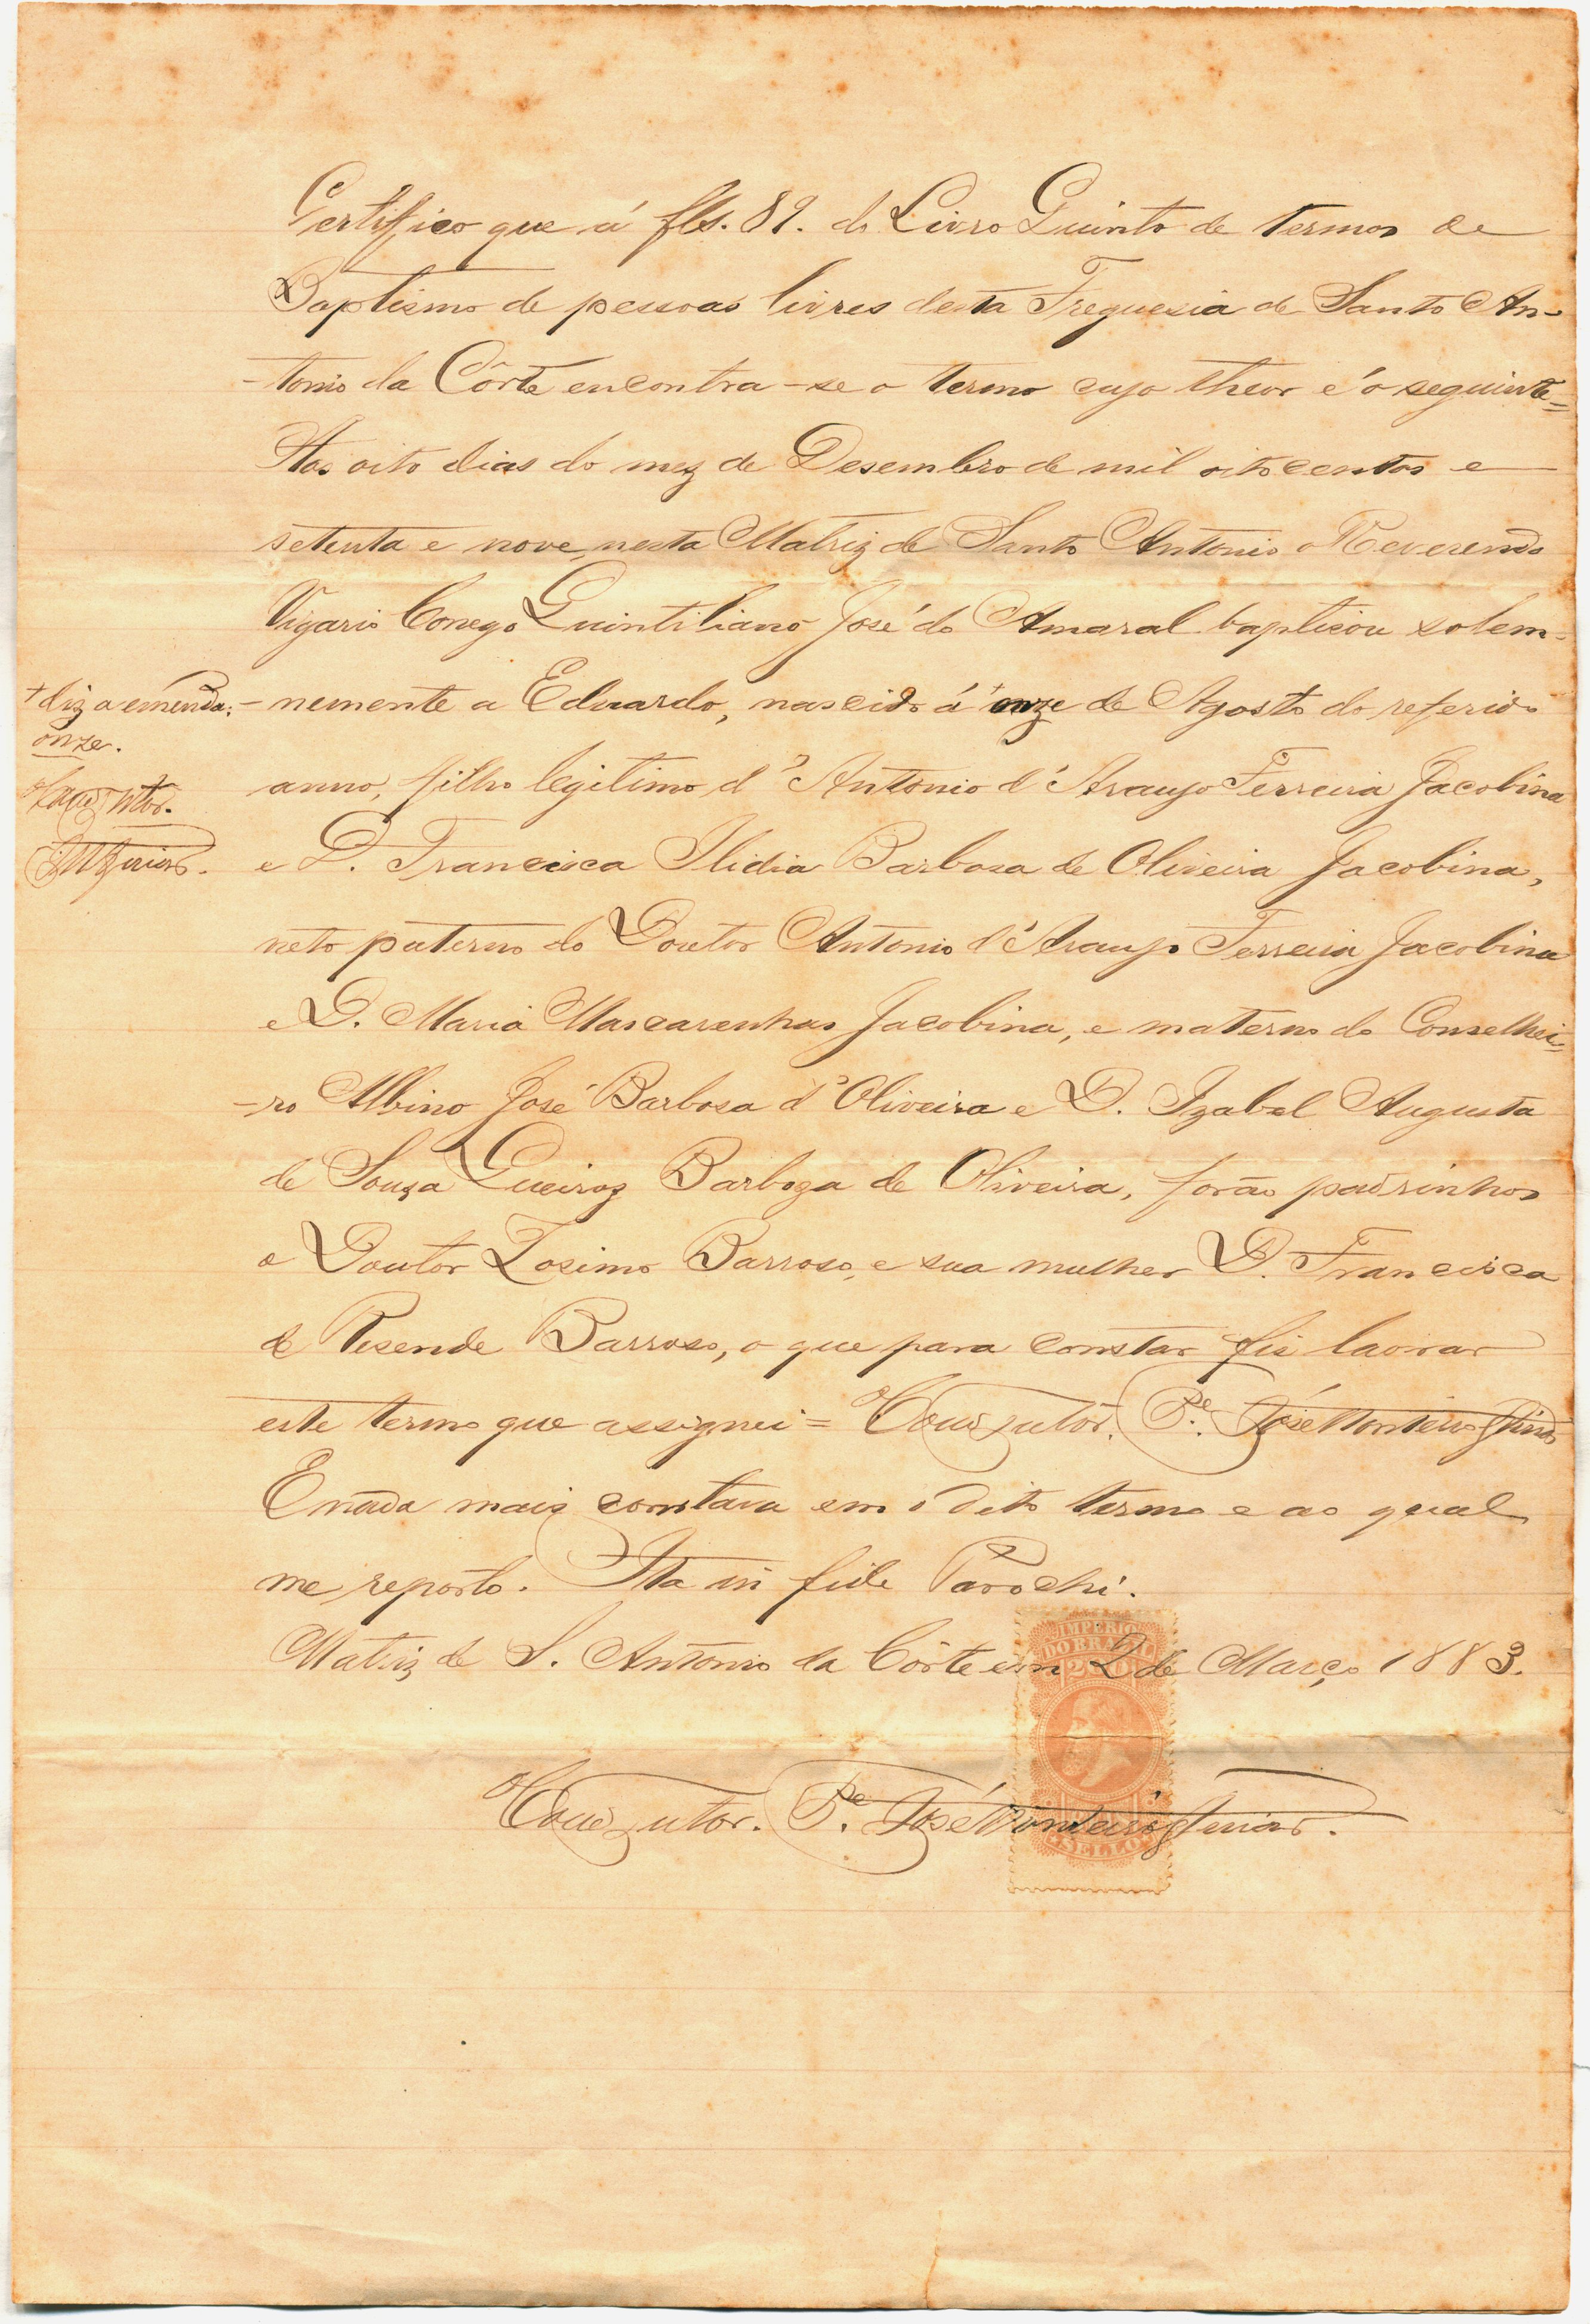 Certifico que á fls. 89. do Livro Quinto de termos de
Baptismo de pessoas livres desta Freguesia de Santo An-
-tonio da Côrte encontra-se o termo cujo theor é o seguinte=
Aos oito dias do mez de Desembro de mil oitocentos e
setenta e nove, nesta Matriz de Santo Antonio o Reverendo
Vigario Conego Quintiliano José do Amaral baptisou solem-
-nemente a Eduardo, nascido á + onze de Agosto do referido
+ diz a emenda:
onze.
anno, filho legitimo d'Antonio d'Araujo Ferreira Jacobina
e D. Francisca Ilidia Barbosa de Oliveira Jacobina,
neto paterno do Doutor Antonio d'Araujo Ferreira Jacobina
e D. Maria Mascarenhas Jacobina, e materno do Conselhei-
-ro Albino José Barbosa d'Oliveira e D. Izabel Augusta
de Souza Queiroz Barboza de Oliveira, forão padrinhos
o Doutor Zosimo Barroso, e sua mulher D. Francisca
de Resende Barroso, o que para constar fis lavrar
este termo que assignei= O Coadjutor. Pe. José Monteiro
E nada mais constava em o dito termo e ao qual
me reporto. Ita in fide Parochi.
Matriz de S. Antonio da Côrte em 2 de Março 1883.
IMPERIO
DO BRAZIL
200
SELLO
O Coadjutor. Pe. José Monteiro